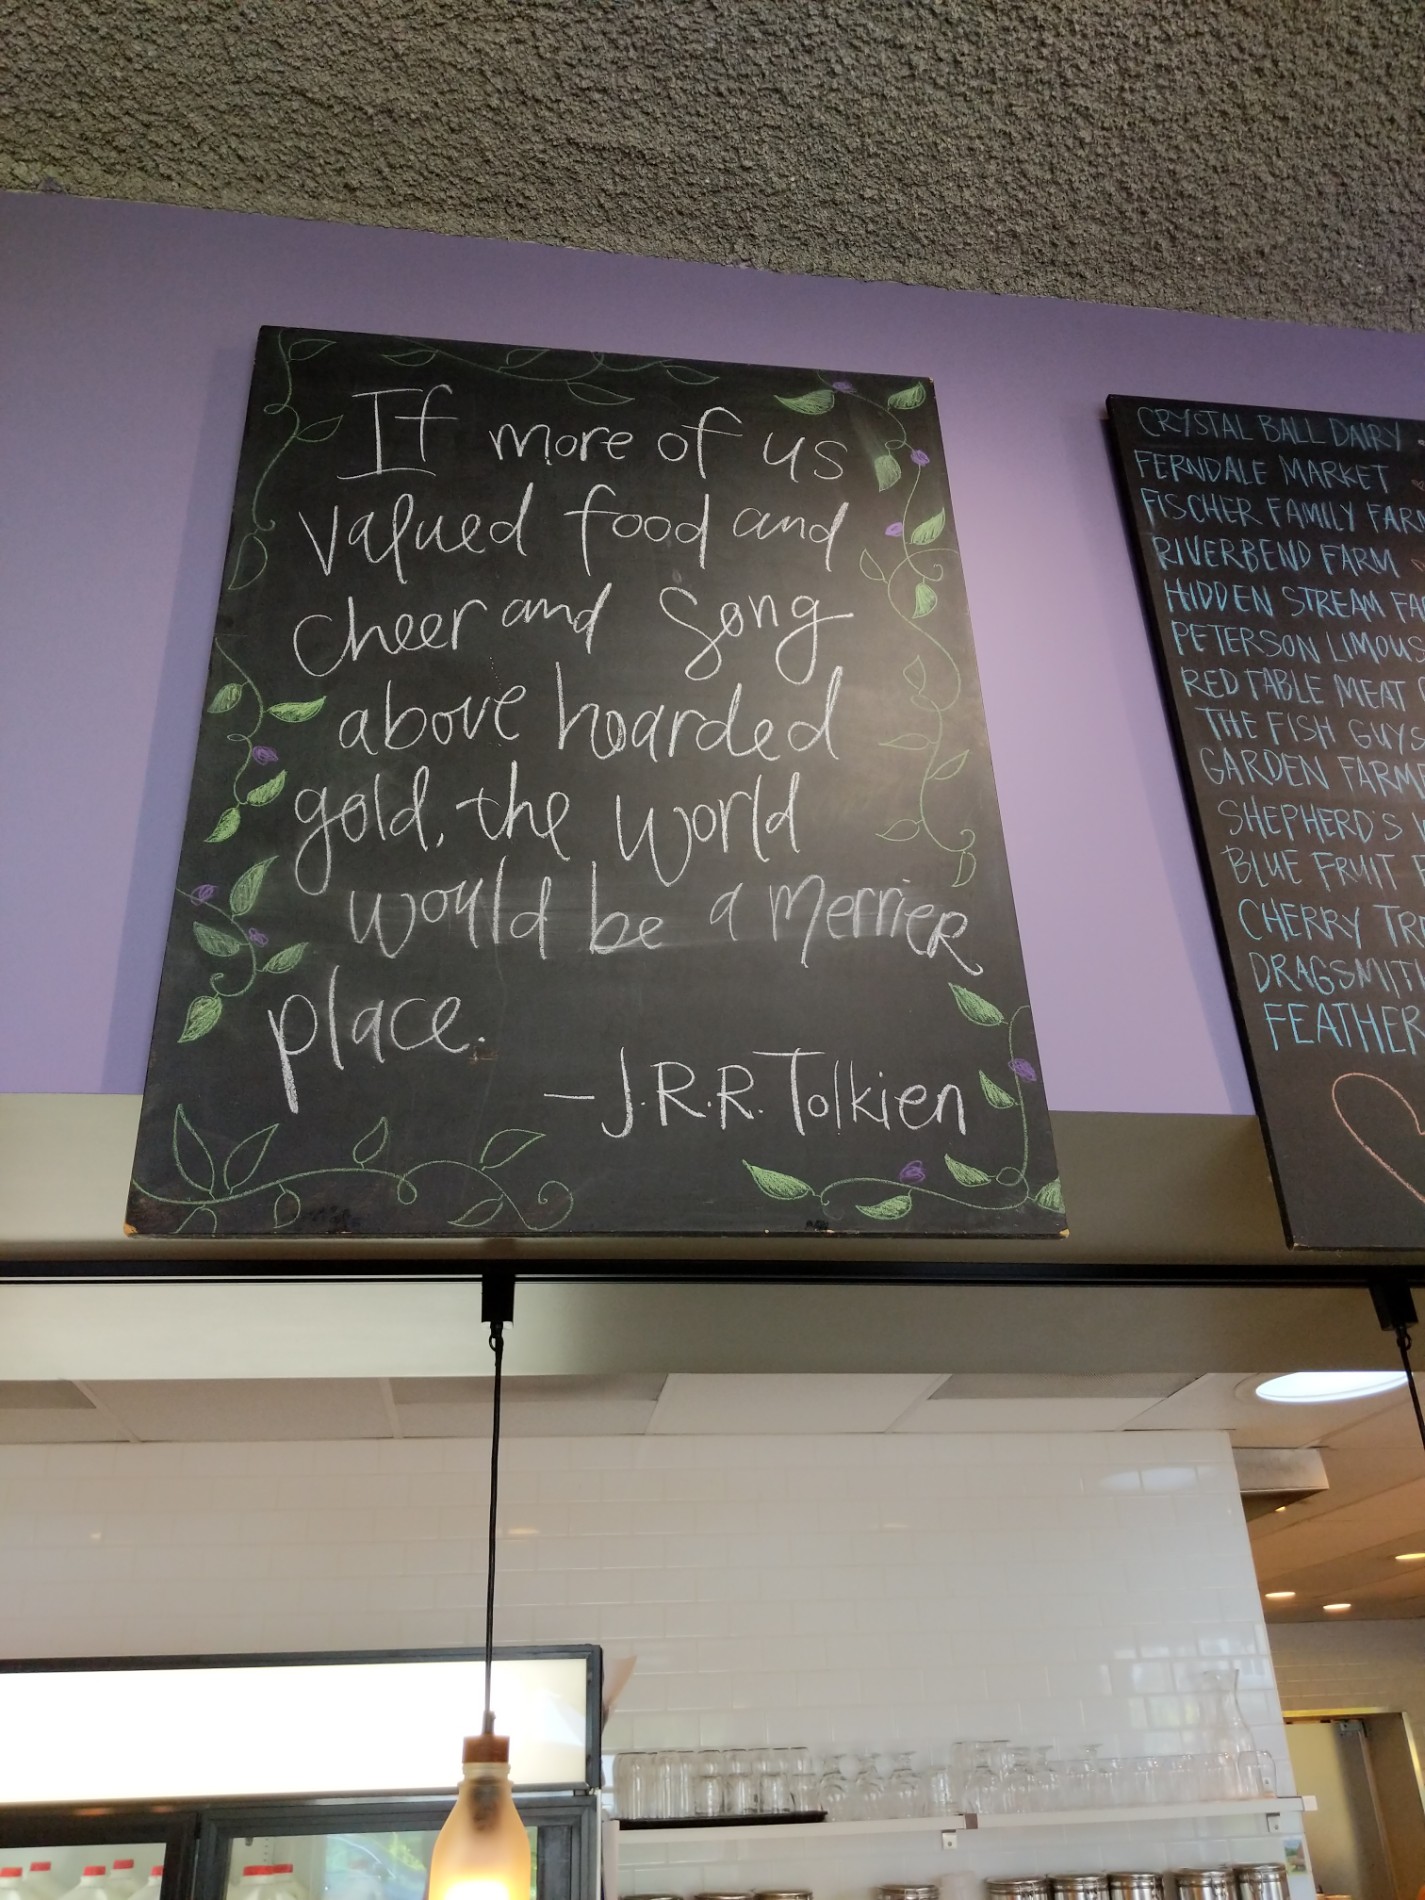 If more of us
valued food and
cheer and song
above hoarded
gold, the world
would be a merrier
place.
—J.R.R. Tolkien
CRYSTAL BALL DAIRY
FERNDALE MARKET
FISCHER FAMILY
RIVERBEND FARM
HIDDEN STREAM
PETERSON
RED TABLE MEAT
THE FISH GUYS
GARDEN
SHEPHERD'S
BLUE FRUIT
CHERRY